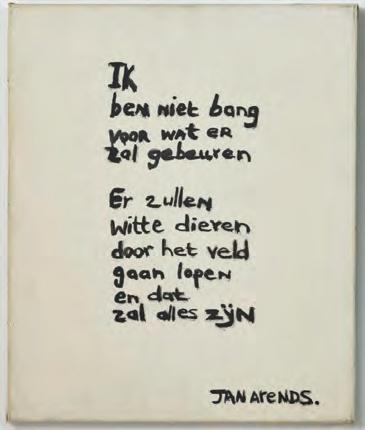 IK
ben niet bang
voor wat er
zal gebeuren
Er zullen
witte dieren
door het veld
gaan lopen
en dat
zal alles zijn
JAN ArENDS.